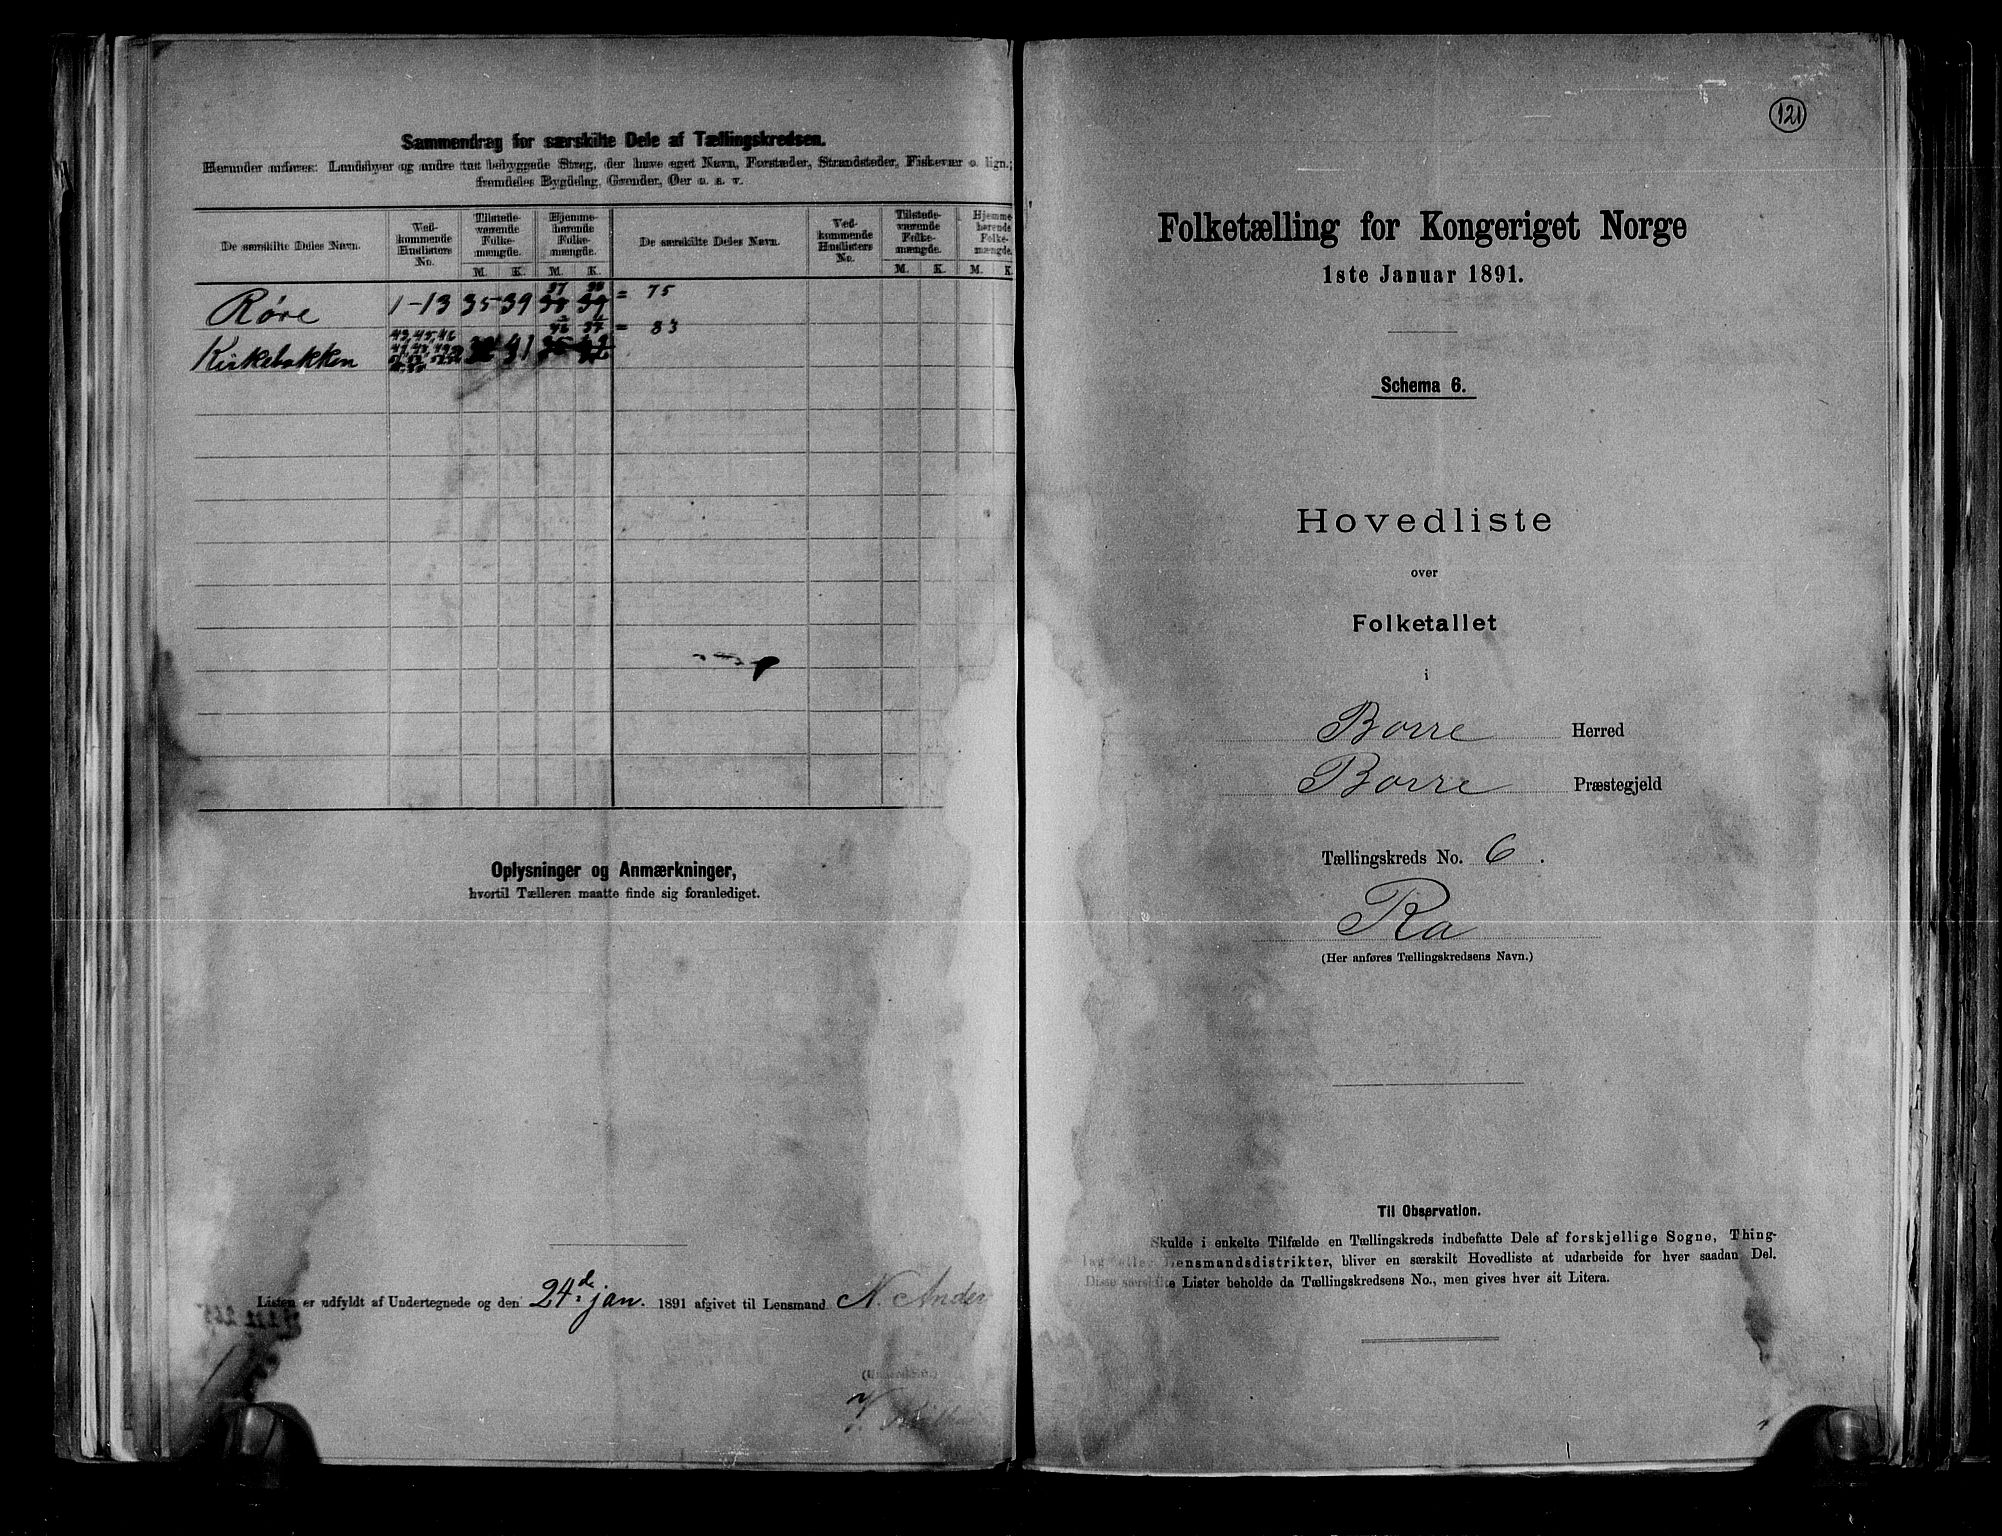 Sammendrag for særskilte Dele af Tællingskredsen.
Herunder anføres: Landsbyer og andre tæt bebyggede Strøg, der have eget Navn, Forstæder, Strandsteder, Fiskevær o. lign.;
fremdeles Bygdelag, Grender, Øer o. s. v.
De særskilte Deles Navn.
Ved-
kommende
Huslisters
No.
Tilstede-
værende
Folke-
mængde.
Hjemme-
hørende
Folke-
mængde.
De særskilte Deles Navn.
Ved-
kommende
Huslisters
No.
Tilstede-
værende
Folke-
mængde.
Hjemme-
hørende
Folke-
mængde.
M. K. M. K. M. K. M. K.
37 38
Røre 1-13 35 39 38 39 = 75
43, 45, 46 = 83
Kirkebakken 41
Oplysninger og Anmærkninger,
hvortil Tælleren maatte finde sig foranlediget.
Listen er udfyldt af Undertegnede og den 24de jan. 1891 afgivet til Lensmand N. Ander
121
Folketælling for Kongeriget Norge
1ste Januar 1891.
Schema 6.
Hovedliste
over
Folketallet
i
Borre Herred
Borre Præstegjeld
Tællingskreds No. 6.
Ra
(Her anføres Tællingskredsens Navn.)
Til Observation.
Skulde i enkelte Tilfælde en Tællingskreds indbefatte Dele af forskjellige Sogne, Thing-
lag eller Lensmandsdistrikter, bliver en særskilt Hovedliste at udarbeide for hver saadan Del.
Disse særskilte Lister beholde da Tællingskredsens No., men gives hver sit Litera.